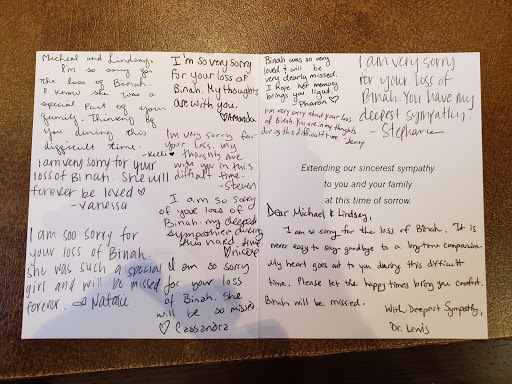 Micheal and Lindsay,
I'm so sorry for
the loss of Binah.
I know she was a
special part of your
family. Thinking of
you during this
difficult time.
- Kelli ♡
I am very sorry for your
loss of Binah. She will
forever be loved ♡
- Vanessa
I am soo sorry for
your loss of Binah.
She was such a special
girl and will be missed
forever. Natalie
I'm so very sorry
for your loss of
Binah. My thoughts
are with you.
♡ Amanda
I'm very sorry for
your loss, my
thoughts are
with you in this
difficult time.
- Steven
I am so sorry
of your loss of
Binah. my deepest
sympathies during
this hard time
♡ Nicole
I am so sorry
for your loss
of Binah. She
will be so missed.
♡ Cassandra
Binah was so very
loved & will be
very dearly missed.
I hope her memory
brings you light.
Pharon ♡
I'm very sorry about your loss
of Binah. You are in my thoughts
during this difficult time. Jenny
I am very sorry
for your loss of
Binah. You have my
deepest sympathy.
- Stephanie
Extending our sincerest sympathy
to you and your family
at this time of sorrow.
Dear Michael & Lindsay,
I am so sorry for the loss of Binah. It is
never easy to say goodbye to a longtime companion.
My heart goes out to you during this difficult
time. Please let the happy times bring you comfort.
Binah will be missed.
With Deepest Sympathy,
Dr. Lewis